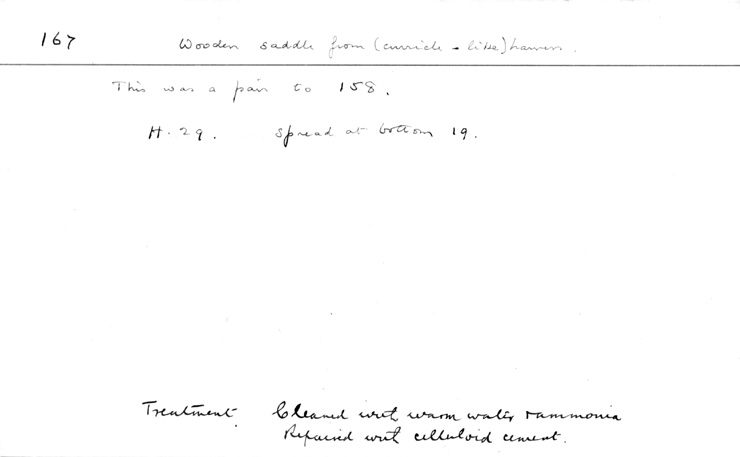 167 Wooden saddle from (curricle-like) harness.
This was a pair to 158.
H. 29. Spread at bottom 19.
Treatment. Cleaned with warm water & ammonia
Repaired with celluloid cement.